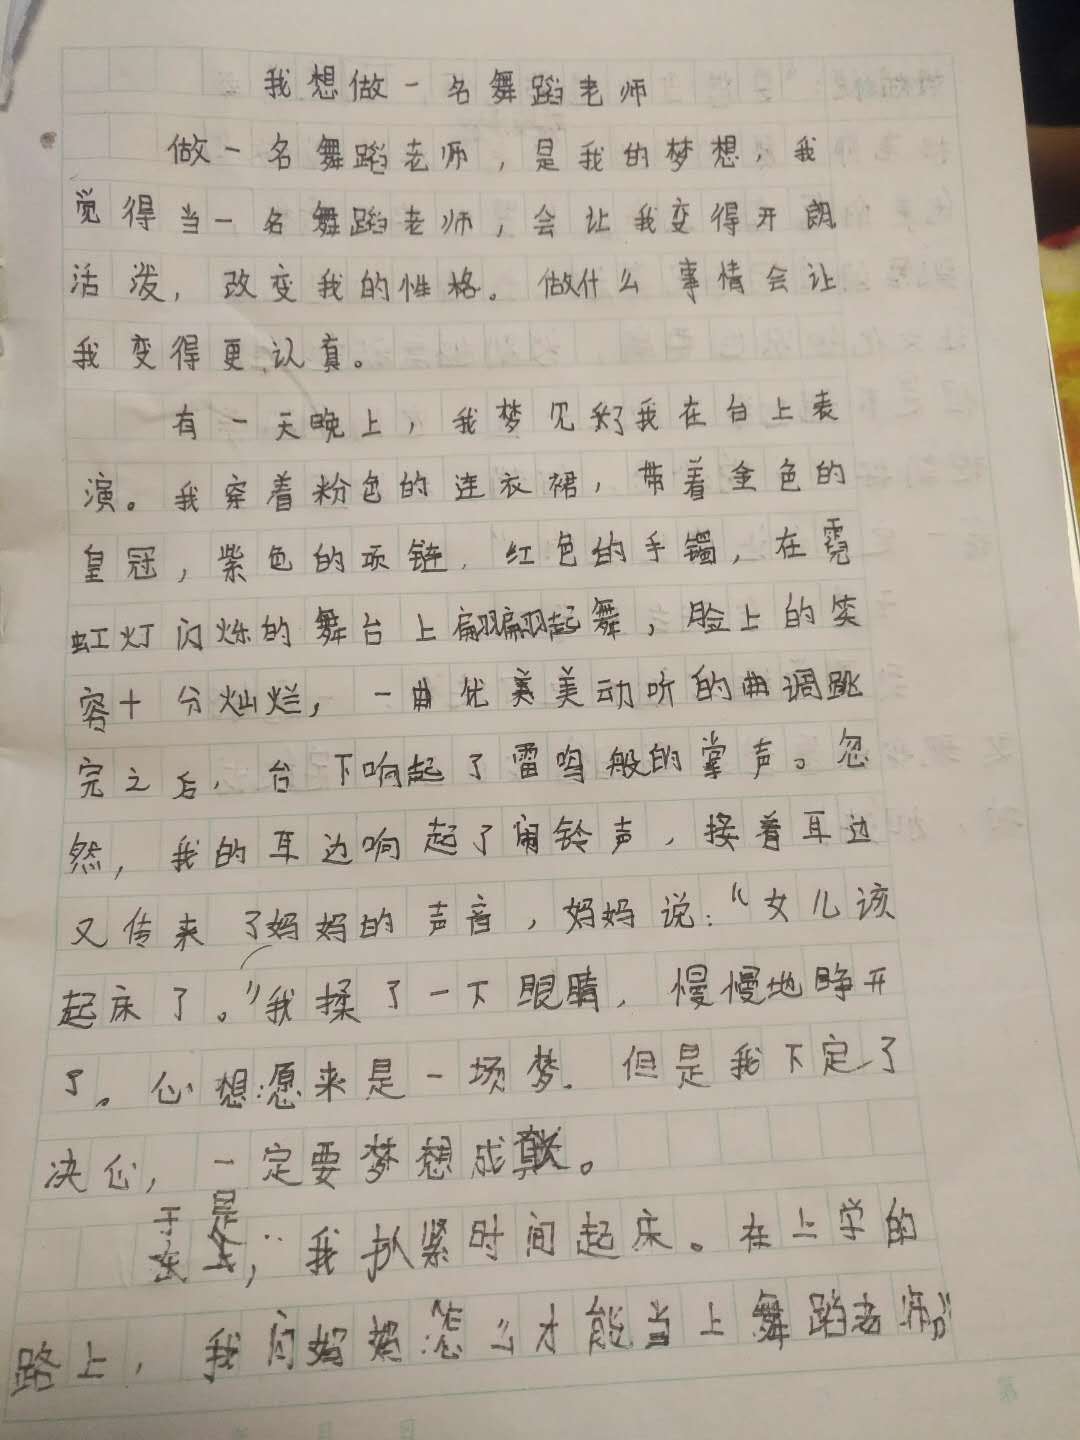 我想做一名舞蹈老师
做一名舞蹈老师，是我的梦想，我
觉得当一名舞蹈老师，会让我变得开朗
活泼，改变我的性格。做什么事情会让
我变得更认真。
有一天晚上，我梦见到了我在台上表
演。我穿着粉色的连衣裙，带着金色的
皇冠，紫色的项链，红色的手镯，在霓
虹灯闪烁的舞台上翩翩起舞，脸上的笑
容十分灿烂，一曲优美动听的曲调跳
完之后，台下响起了雷鸣般的掌声。忽
然，我的耳边响起了闹铃声，接着耳边
又传来了妈妈的声音，妈妈说：“女儿该
起床了。”我揉了一下眼睛，慢慢地睁开
了。心想：愿来是一场梦．但是我下定了
决心，一定要梦想成真。
于是，我扒紧时间起床。在上学的
路上，我问妈妈：“怎么才能当上舞蹈老师？”